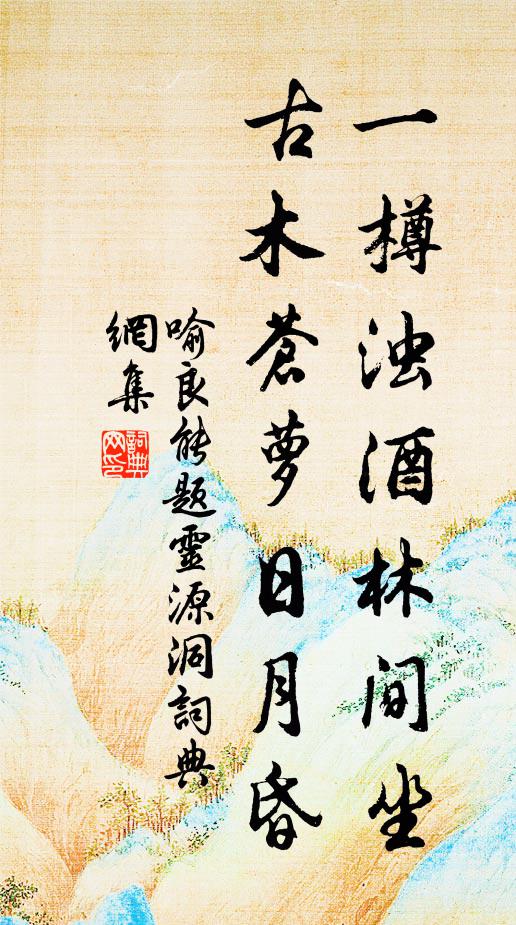 一樽浊酒林间坐
古木蒼萝日月昏
喻良能题靈源洞詞典
網集
詞典
网印